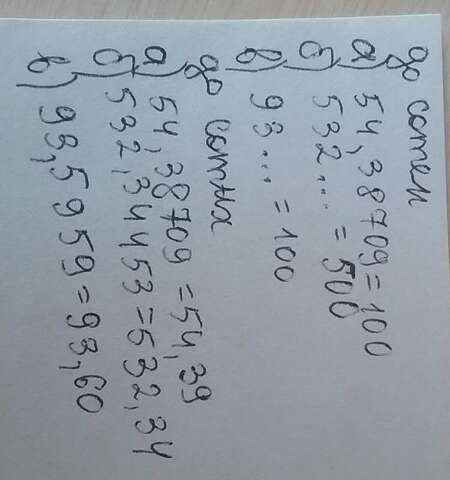 до сотен
а) 54,38709=100
б) 532... = 500
в) 93... = 100
до сотых
а) 54,38709 =54,39
б) 532,34453=532,34
в) 93,5959=93,60